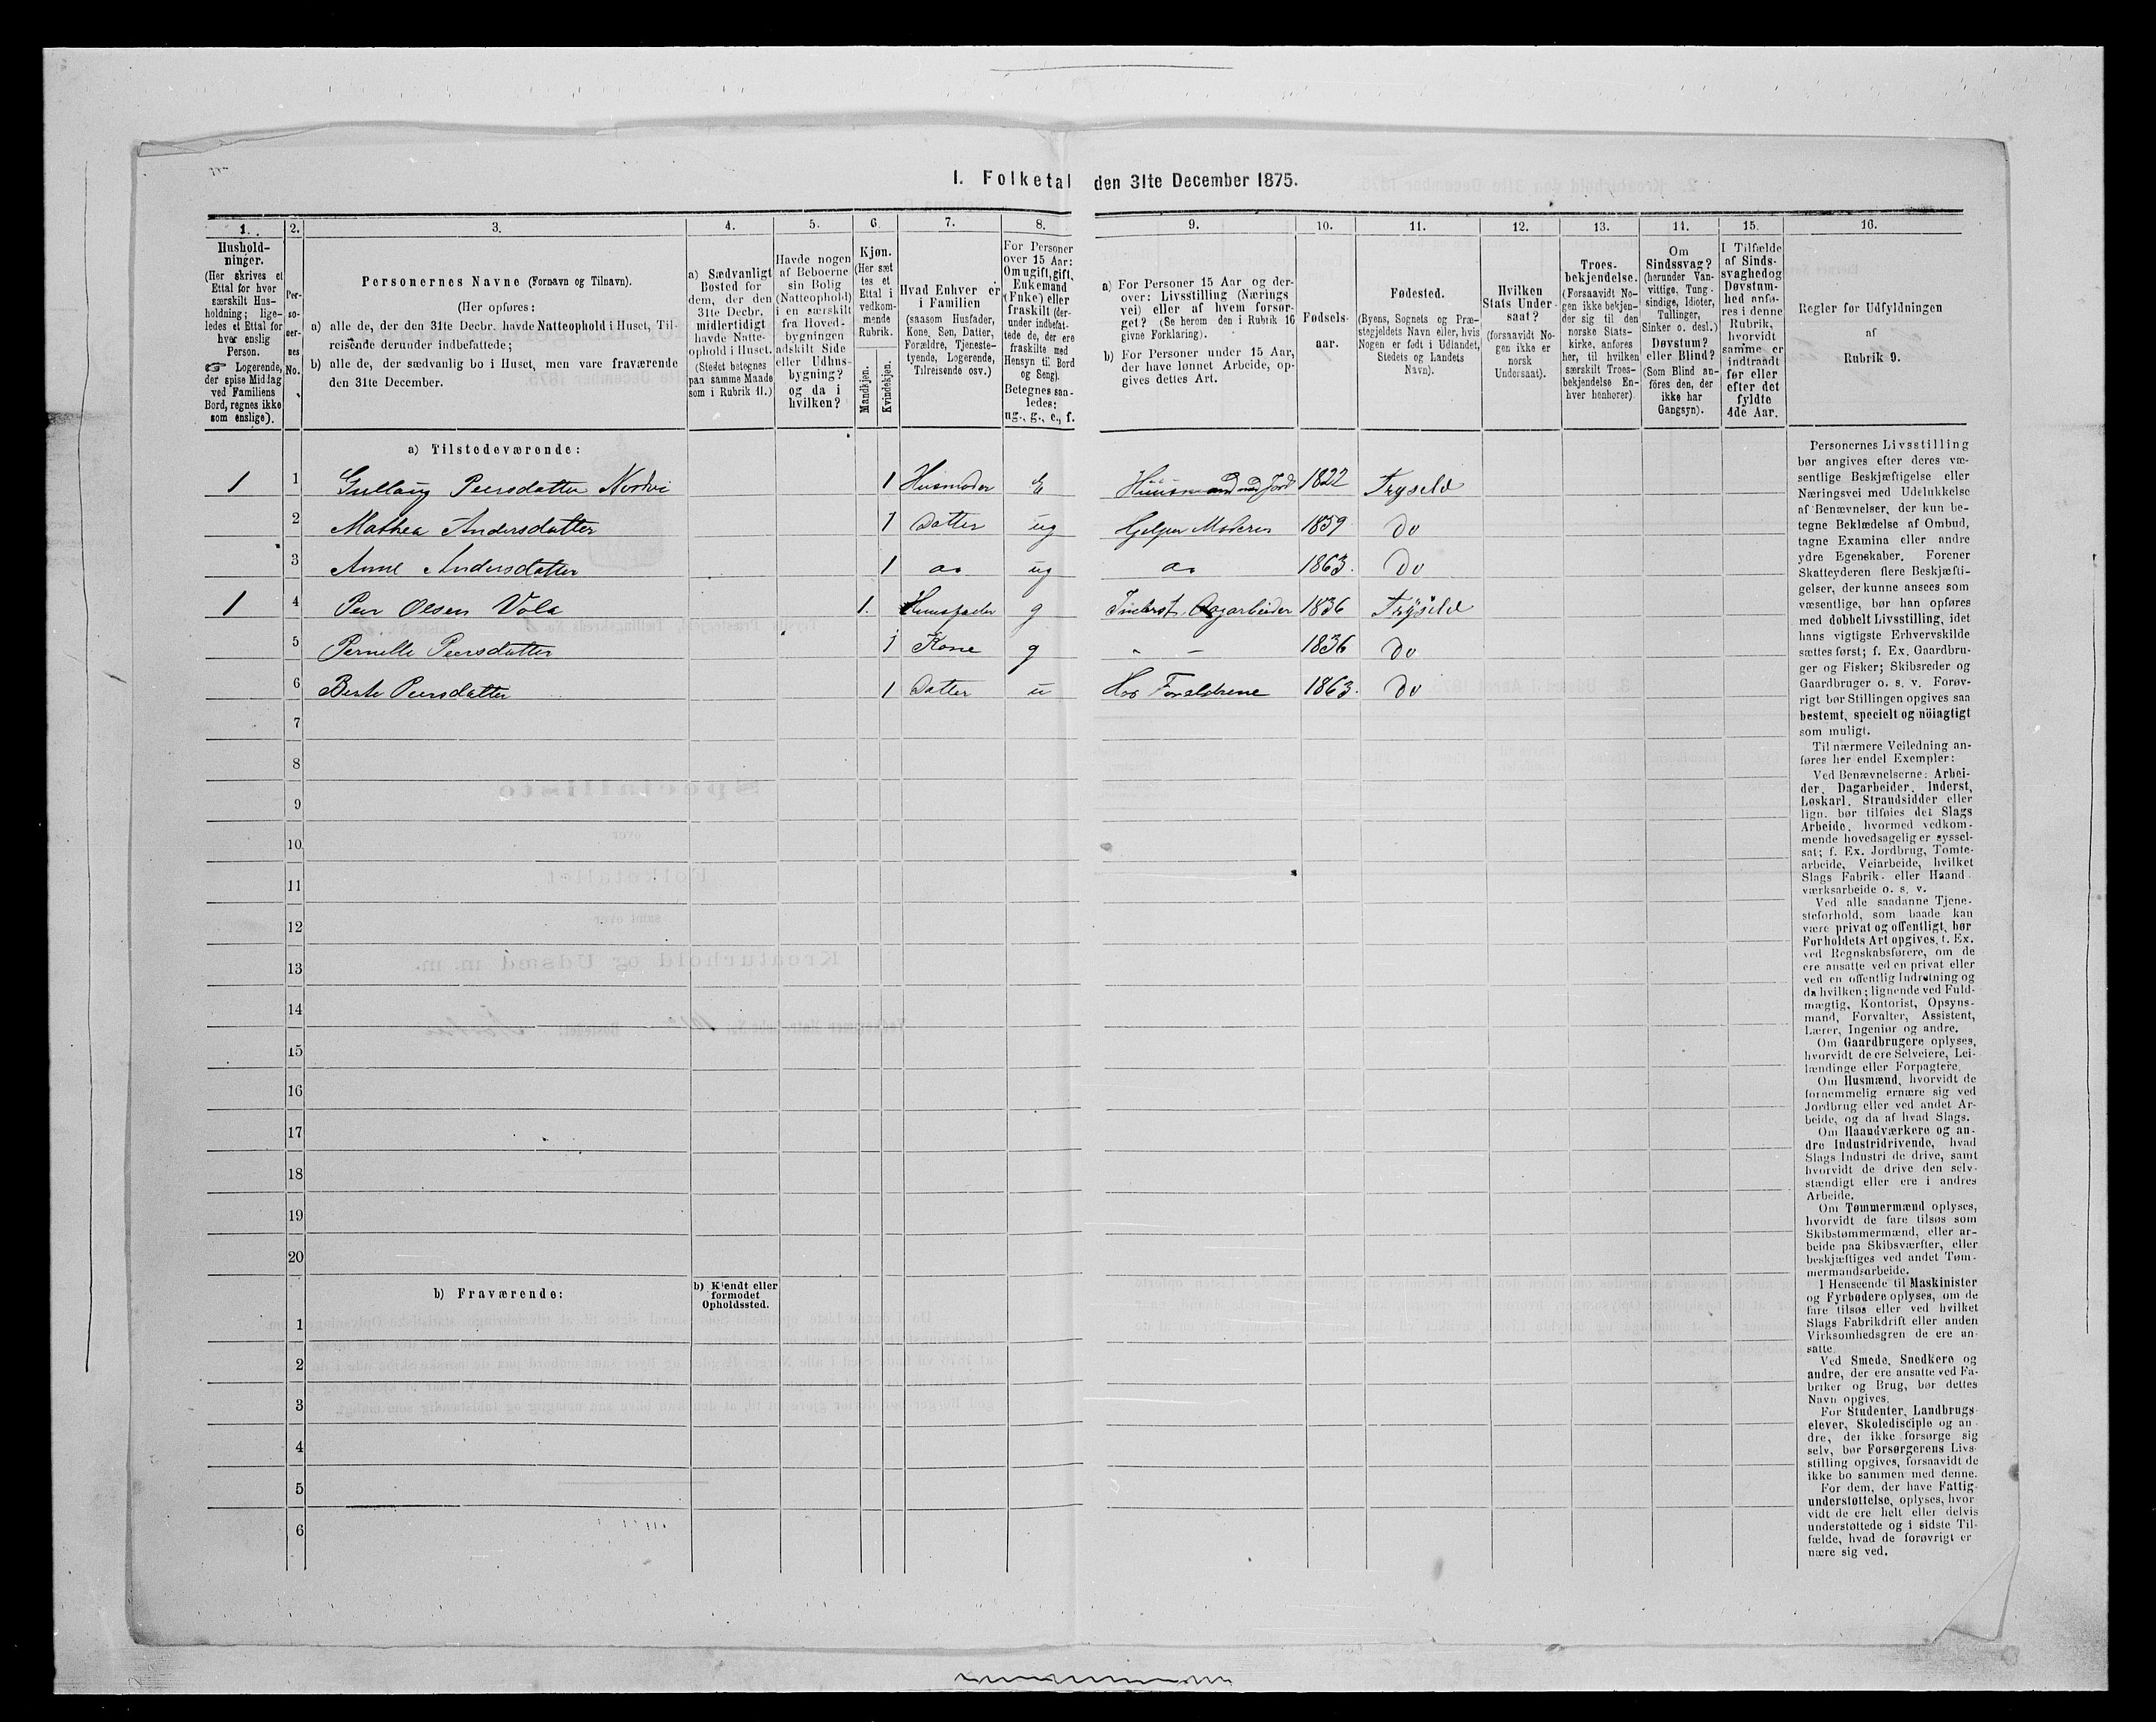 I. Folketal den 31te December 1875.
1.
2.
3.
4.
5.
6.
7.
8.
9.
10.
11.
12.
13.
14.
15.
16.
Hushold-
ninger.
(Her skrives et
Ettal for hver
særskilt Hus-
holdning; lige-
ledes et Ettal for
hver enslig
Person.
☞ Logerende,
der spise Middag
ved Familiens
Bord, regnes ikke
som enslige).
Per-
so-
ner-
nes
No.
Personernes Navne (Fornavn og Tilnavn).
(Her opføres:
a) alle de, der den 31te Decbr. havde Natteophold i Huset, Til-
reisende derunder indbefattede;
b) alle de, der sædvanlig bo i Huset, men vare fraværende
den 31te December.
a) Sædvanligt
Bosted for
dem, der den
31te Decbr.
midlertidigt
havde Natte-
ophold i Huset.
(Stedet betegnes
paa samme Maade
som i Rubrik 11.)
Havde nogen
af Beboerne
sin Bolig
(Natteophold)
i en særskilt
fra Hoved-
bygningen
adskilt Side
eller Udhus-
bygning?
og da i
hvilken?
Kjøn.
(Her sæt
tes et
Ettal i
vedkom-
mende
Rubrik.
Mandkjøn.
Kvindekjøn.
Hvad Enhver er
i Familien
(saasom Husfader,
Kone, Søn, Datter,
Forældre, Tjeneste-
tyende, Logerende,
Tilreisende osv.)
For Personer
over 15 Aar:
Om ugift, gift,
Enkemand
(Enke) eller
fraskilt (der-
under indbefat-
tede de, der ere
fraskilte med
Hensyn til Bord
og Seng).
Betegnes saa-
ledes:
ug., g., e., f.
a) For Personer 15 Aar og der-
over: Livsstilling (Nærings
vei) eller af hvem forsør-
get? (Se herom den i Rubrik 16
givne Forklaring).
b) For Personer under 15 Aar,
der have lønnet Arbeide, op-
gives dettes Art.
Fødsels-
aar.
Fødested.
(Byens, Sognets og Præ-
stegjeldets Navn eller, hvis
Nogen er født i Udlandet,
Stedets og Landets
Navn).
Hvilken
Stats Under-
saat?
(forsaavidt No-
gen ikke er
norsk
Undersaat).
Troes-
bekjendelse.
(Forsaavidt No-
gen ikke bekjen-
der sig til den
norske Stats-
kirke, anføres
her, til hvilken
særskilt Troes-
bekjendelse En-
hver henhører)
Om
Sindssvag?
(herunder Van-
vittige, Tung-
sindige, Idioter,
Tullinger,
Sinker o. desl.)
Døvstum?
eller Blind?
(Som Blind an-
føres den, der
ikke har
Gangsyn).
I Tilfælde
af Sinds-
svaghed og
Døvstum-
hed anfø-
res i denne
Rubrik,
hvorvidt
samme er
indtraadt
før eller
efter det
fyldte
4de Aar.
Regler for Udfyldningen
af
Rubrik 9.
a) Tilstedeværende:
1 1 Gullaug Peersdatter Nordvi 1 Husmoder E Huusmand med Jord 1822 Trysild
2 Mathea Andersdatter 1 Datter ug Hjelper Moderen 1859 Do
3 Anne Andersdatter 1 do ug do 1863. Do
1 4 Peer Olsen Vola 1. Huusfader g Inderst, Dagarbeider 1836 Trysild
5 Pernille Peersdatter 1 Kone g " – 1836 Do
6 Berte Peersdatter 1 Datter u Hos Forældrene 1863. Do
7
8
9
10
11
12
13
14
15
16
17
18
19
20
b) Fraværende:
b) Kjendt eller
formodet
Opholdssted.
1
2
3
4
5
6
Personernes Livsstilling
bør angives efter deres væ-
sentlige Beskjæftigelse eller
Næringsvei med Udelukkelse
af Benævnelser, der kun be-
tegne Beklædelse af Ombud,
tagne Examina eller andre
ydre Egenskaber. Forener
Skatteyderen flere Beskjæfti-
gelser, der kunne ansees som
væsentlige, bør han opføres
med dobbelt Livsstilling, idet
hans vigtigste Erhvervskilde
sættes først; f. Ex. Gaardbru-
ger og Fisker; Skibsreder og
Gaardbruger o. s. v. Forøv-
rigt bør Stillingen opgives saa
bestemt, specielt og nöiagtigt
som muligt.
Til nærmere Veiledning an-
føres her endel Exempler:
Ved Benævnelserne: Arbei-
der, Dagarbeider, Inderst,
Løskarl, Strandsidder eller
lign. bør tilføies det Slags
Arbeide, hvormed vedkom-
mende hovedsagelig er syssel-
sat; f. Ex. Jordbrug, Tomte-
arbeide, Veiarbeide, hvilket
Slags Fabrik- eller Haand
værksarbeide o. s. v.
Ved alle saadanne Tjene-
steforhold, som baade kan
være privat og offentligt, bør
Forholdets Art opgives, f. Ex.
ved Regnskabsførere, om de
ere ansatte ved en privat eller
ved en offentlig Indretning og
da hvilken; lignende ved Fuld-
mægtig, Kontorist, Opsyns-
mand, Forvalter, Assistent,
Lærer, Ingeniør og andre.
Om Gaardbrugere oplyses,
hvorvidt de ere Selveiere, Lei-
lændinge eller Forpagtere.
Om Husmænd, hvorvidt de
fornemmelig ernære sig ved
Jordbrug eller ved andet Ar-
beide, og da af hvad Slags.
Om Haandværkere og an-
dre Industridrivende, hvad
Slags Industri de drive, samt
hvorvidt de drive den selv-
stændigt eller ere i andres
Arbeide.
Om Tømmermænd oplyses,
hvorvidt de fare tilsøs som
Skibstømmermænd, eller ar-
beide paa Skibsværfter, eller
beskjæftiges ved andet Tøm-
mermandsarbeide.
I Henseende til Maskinister
og Fyrbødere oplyses, om de
fare tilsøs eller ved hvilket
Slags Fabrikdrift eller anden
Virksomhedsgren de ere an-
satte.
Ved Smede, Snedkere og
andre, der ere ansatte ved Fa-
briker og Brug, bør dettes
Navn opgives.
For Studenter, Landbrugs-
elever, Skoledisciple og an-
dre, der ikke forsørge sig
selv, bør Forsørgerens Livs-
stilling opgives, forsaavidt de
ikke bo sammen med denne.
For dem, der have Fattig-
understøttelse, oplyses, hvor
vidt de ere helt eller delvis
understøttede og i sidste Til-
fælde, hvad de forøvrigt er
nære sig ved.